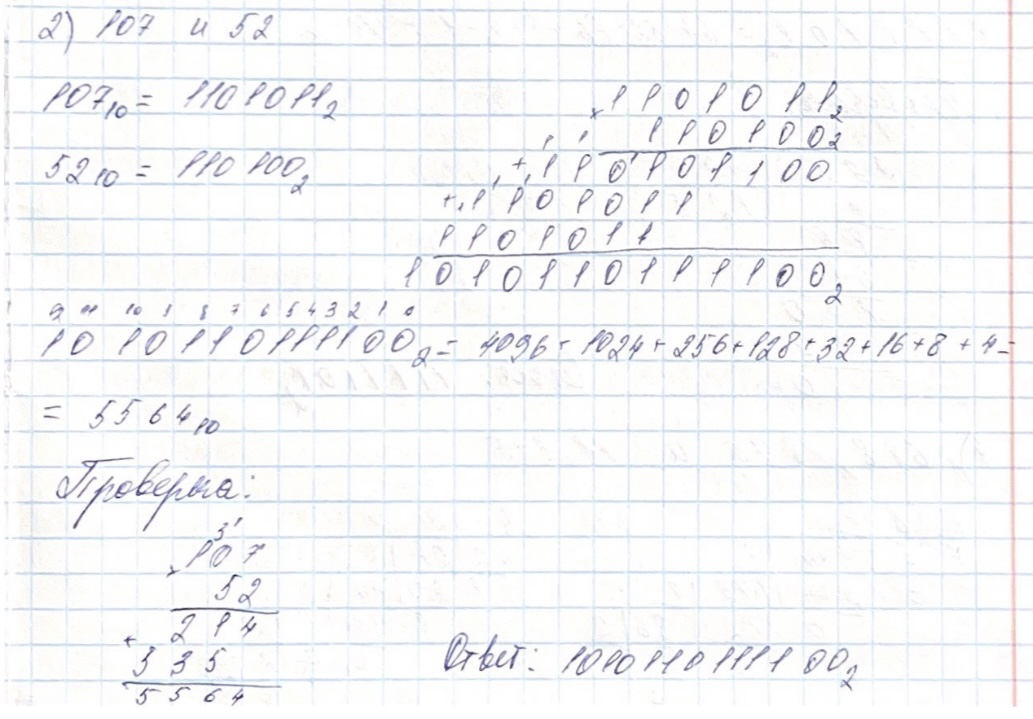 2) 107 и 52
107₁₀ = 1101011₂
52₁₀ = 110100₂
× 1101011₂
110100₂
+ 110101100
+ 1101011
1101011
1010110111100₂
1010110111100₂ = 4096 + 1024 + 256 + 128 + 32 + 16 + 8 + 4 =
= 5564₁₀
Проверка:
× 107
52
214
+ 535
5564
Ответ: 1010110111100₂